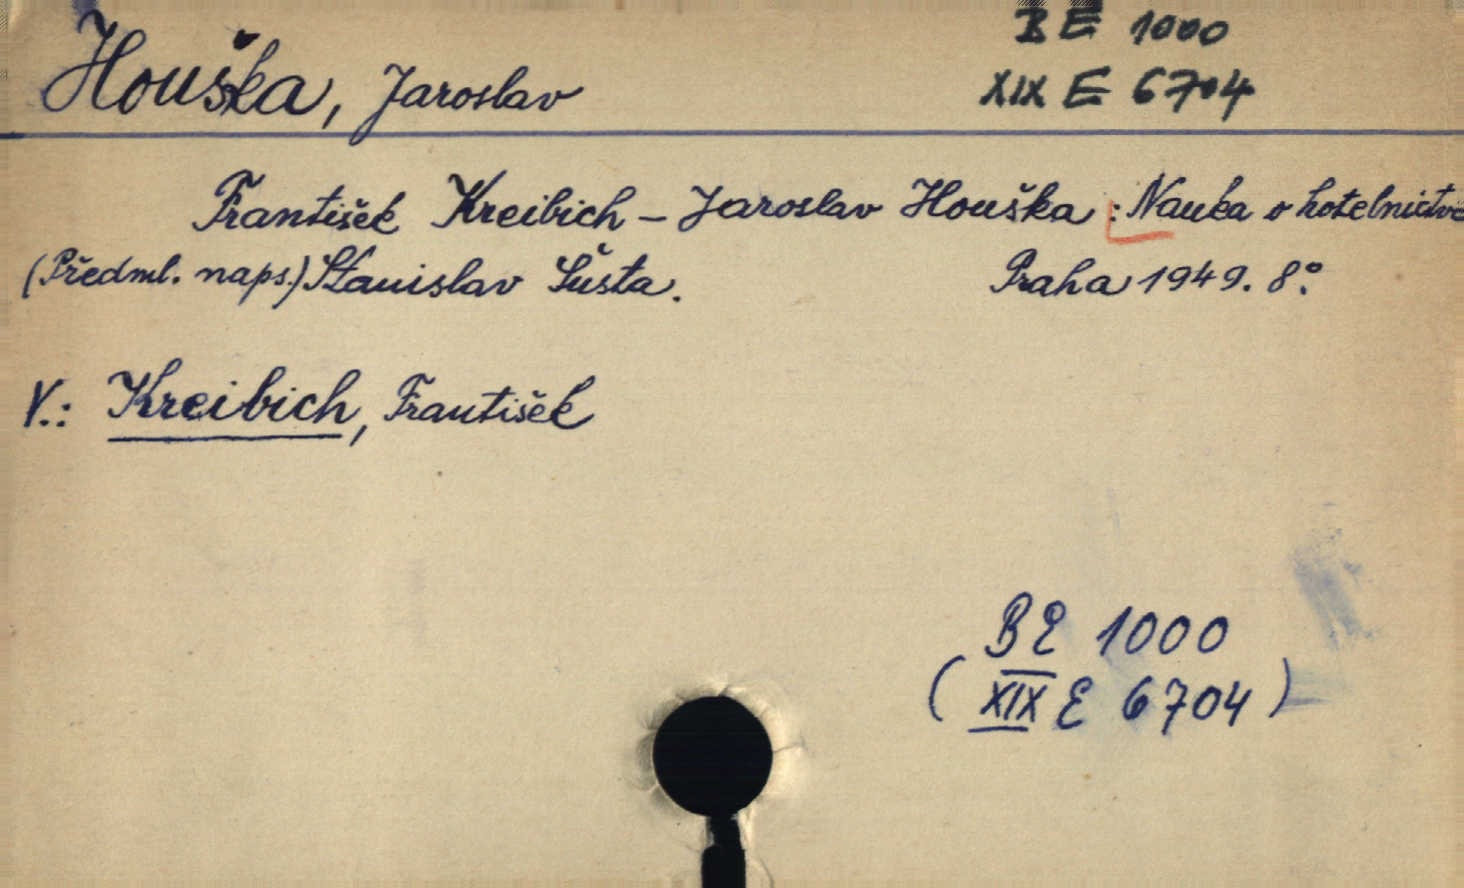 BE 1000
Houška, Jaroslav XIX E 6704
František Kreibich - Jaroslav Houška: Nauka o hotelnictví
(Předml. naps.) Stanislav Šusta. Praha 1949. 8°.
V.: Kreibich, František
BE 1000
(XIX E 6704)